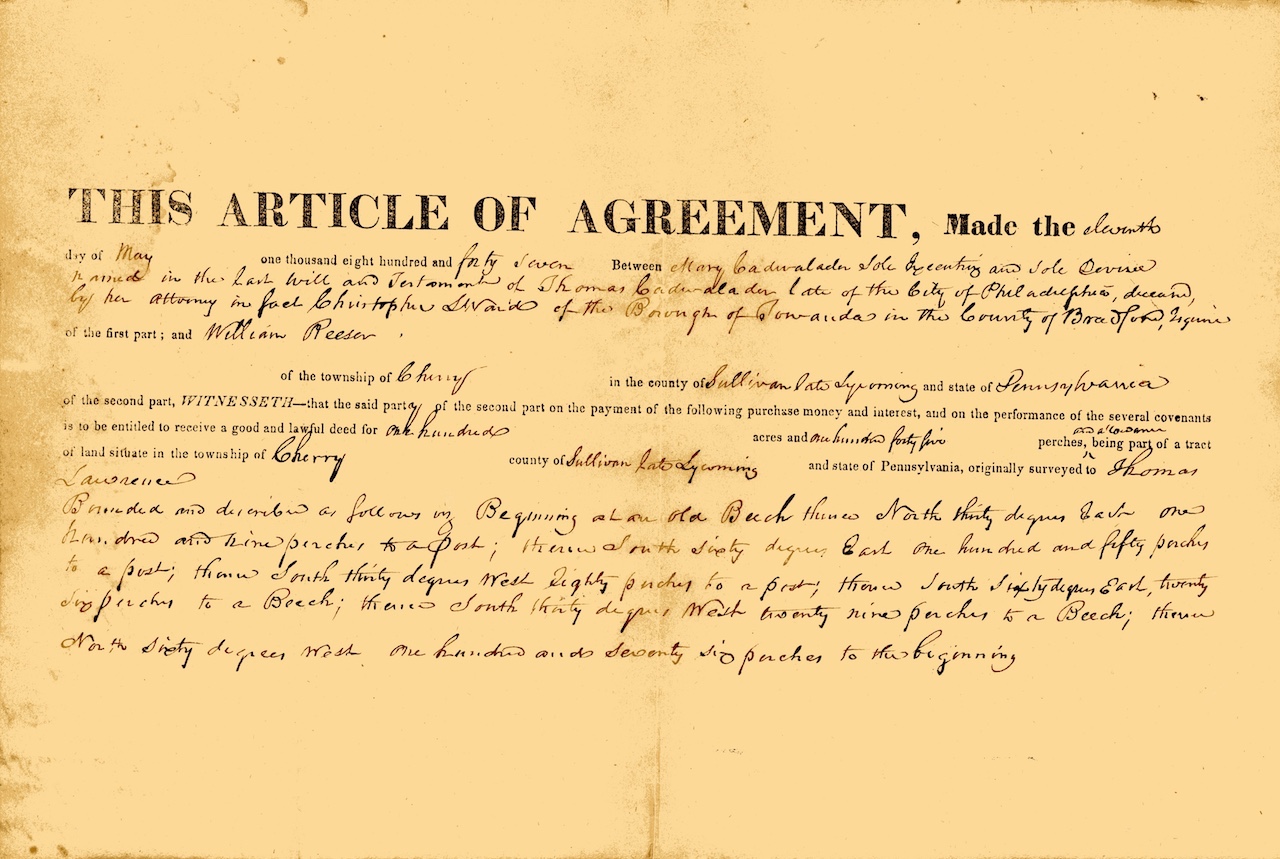 THIS ARTICLE OF AGREEMENT, Made the eleventh
day of May one thousand eight hundred and forty seven Between Mary Cadwalader Sole Executrix and sole Devisee
named in the last will and Testament of Thomas Cadwalader late of the City of Philadelphia, deceased,
by her attorney in fact Christopher L Ward of the Borough of Towanda in the County of Bradford, Esquire
of the first part; and William Reeser
of the township of Cherry in the county of Sullivan late Lycoming and state of Pennsylvania
of the second part, WITNESSETH—that the said party of the second part on the payment of the following purchase money and interest, and on the performance of the several covenants
is to be entitled to receive a good and lawful deed for one hundred acres and one hundred forty five and allowance perches, being part of a tract
of land situate in the township of Cherry county of Sullivan late Lycoming and state of Pennsylvania, originally surveyed to Thomas
Lawrence
Bounded and described as follows viz Beginning at an old Beech thence North thirty degrees East one
hundred and nine perches to a post; thence South sixty degrees East one hundred and fifty perches
to a post; thence South thirty degrees West Eighty perches to a post; thence South Sixty degrees East, twenty
six perches to a Beech; thence South thirty degrees West twenty nine perches to a Beech; thence
North sixty degrees West one hundred and seventy six perches to the beginning